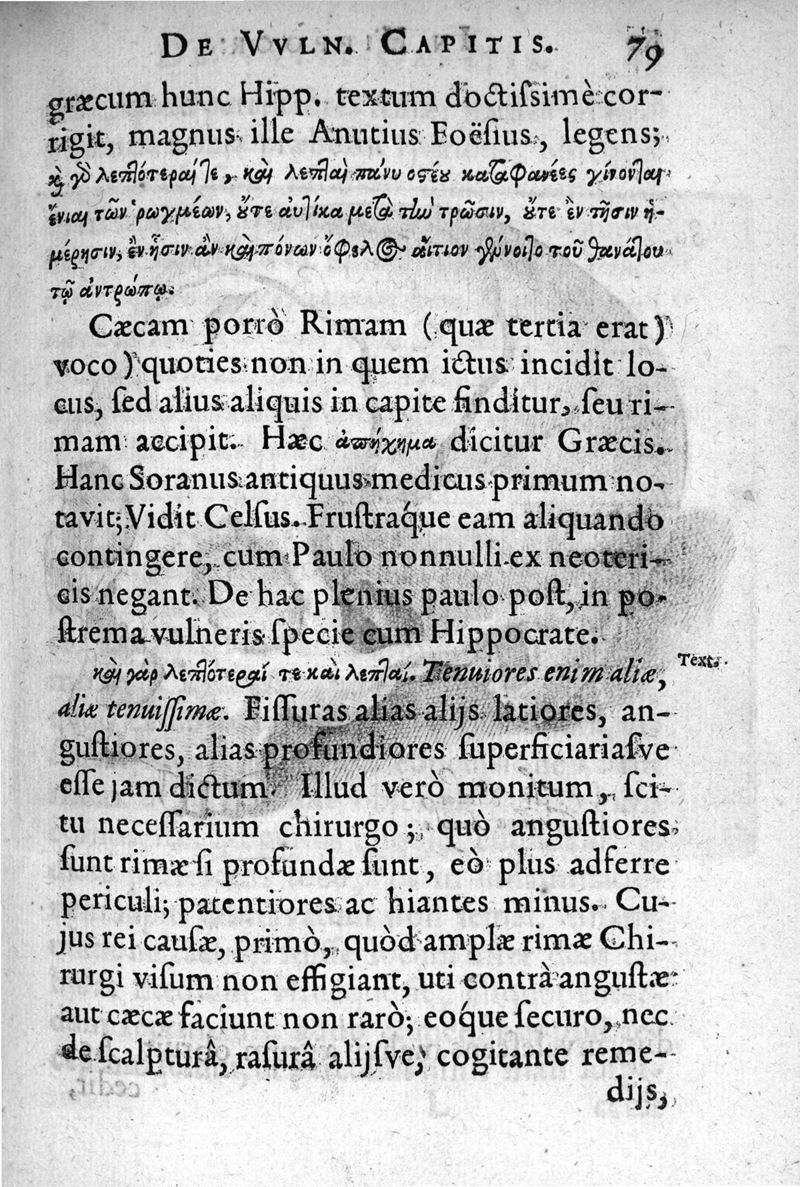 DE VVLN. CAPITIS. 79
græcum hunc Hipp. textum doctiſsimè cor-
rigit, magnus ille Anutius Foëſius, legens;
καὶ γὸ λεπλότεραί τε, καὶ λεπλαὶ πάνυ οστέȣ καταφανέες γίνονλαι
ἔνιαι τῶν ῥωγμέων, ȣ̓τε αὐλίκα μετὰ τὴν τρῶσιν, ȣ̓τε ἐν τῆσιν ἡ-
μέρησιν, ἐν ᾗσιν ἂν καὶ πόνων ὄφελος αἴτιον γένοιλο τοῦ θανάλου
τῷ ἀντρώπῳ.
Cæcam porrò Rimam (quæ tertia erat)
voco) quoties non in quem ictus incidit lo-
cus, ſed alius aliquis in capite finditur, ſeu ri-
mam accipit. Hæc ἀπήχημα dicitur Græcis.
Hanc Soranus antiquus medicus primum no-
tavit; Vidit Celſus. Fruſtráque eam aliquando
contingere, cum Paulo nonnulli ex neoteri-
cis negant. De hac plenius paulo poſt, in po-
ſtrema vulneris ſpecie cum Hippocrate.
καὶ γὰρ λεπλότεραί τε καὶ λεπλαί. Tenuiores enim aliæ, Text.
aliæ tenuiſſimæ. Fiſſuras alias alijs latiores, an-
guſtiores, alias profundiores ſuperficiariaſve
eſſe jam dictum. Illud verò monitum, ſci-
tu neceſſarium chirurgo; quò anguſtiores
ſunt rimæ ſi profundæ ſunt, eò plus adferre
periculi; patentiores ac hiantes minus. Cu-
jus rei cauſæ, primò, quòd amplæ rimæ Chi-
rurgi viſum non effigiant, uti contrà anguſtæ
aut cæcæ faciunt non rarò; eoque ſecuro, nec
de ſcalpturâ, raſurâ alijſve, cogitante reme-
dijs,